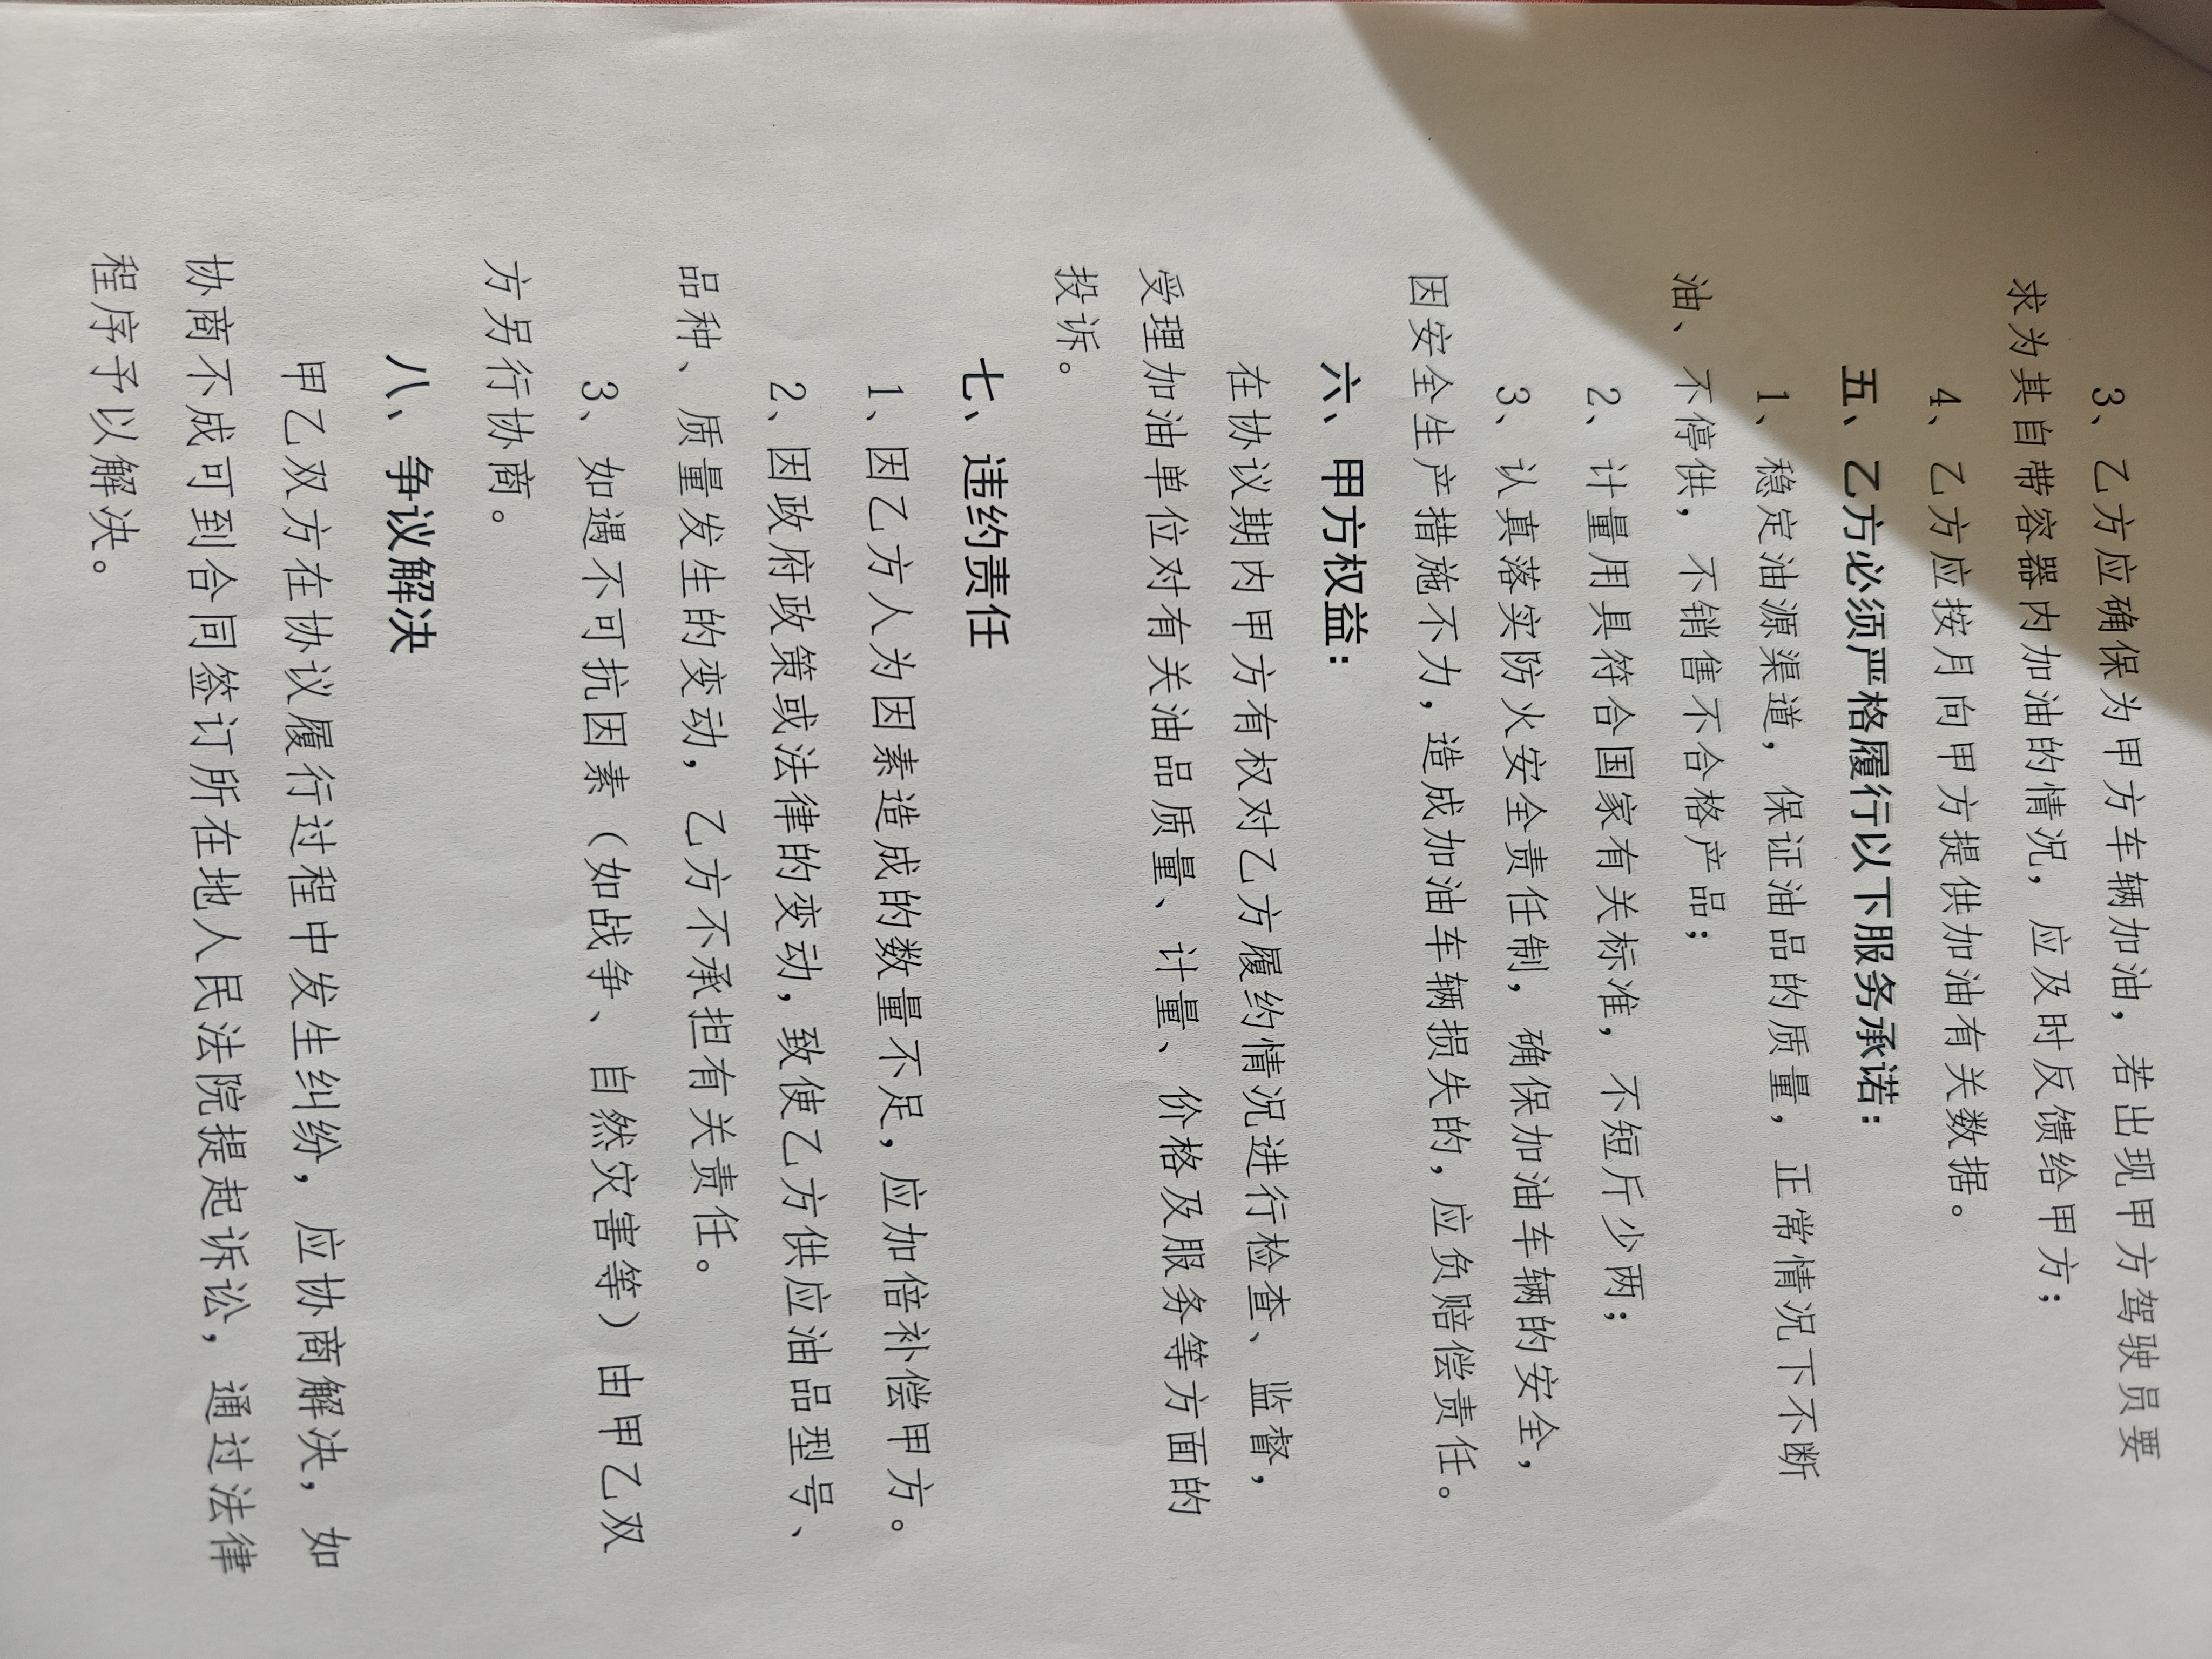 3、乙方应确保为甲方车辆加油，若出现甲方驾驶员要
求为其自带容器内加油的情况，应及时反馈给甲方；
4、乙方应按月向甲方提供加油有关数据。
五、乙方必须严格履行以下服务承诺：
1、稳定油源渠道，保证油品的质量，正常情况下不断
油、不停供，不销售不合格产品；
2、计量用具符合国家有关标准，不短斤少两；
3、认真落实防火安全责任制，确保加油车辆的安全，
因安全生产措施不力，造成加油车辆损失的，应负赔偿责任。
六、甲方权益：
在协议期内甲方有权对乙方履约情况进行检查、监督，
受理加油单位对有关油品质量、计量、价格及服务等方面的
投诉。
七、违约责任
1、因乙方人为因素造成的数量不足，应加倍补偿甲方。
2、因政府政策或法律的变动，致使乙方供应油品型号、
品种、质量发生的变动，乙方不承担有关责任。
3、如遇不可抗因素（如战争、自然灾害等）由甲乙双
方另行协商。
八、争议解决
甲乙双方在协议履行过程中发生纠纷，应协商解决，如
协商不成可到合同签订所在地人民法院提起诉讼，通过法律
程序予以解决。